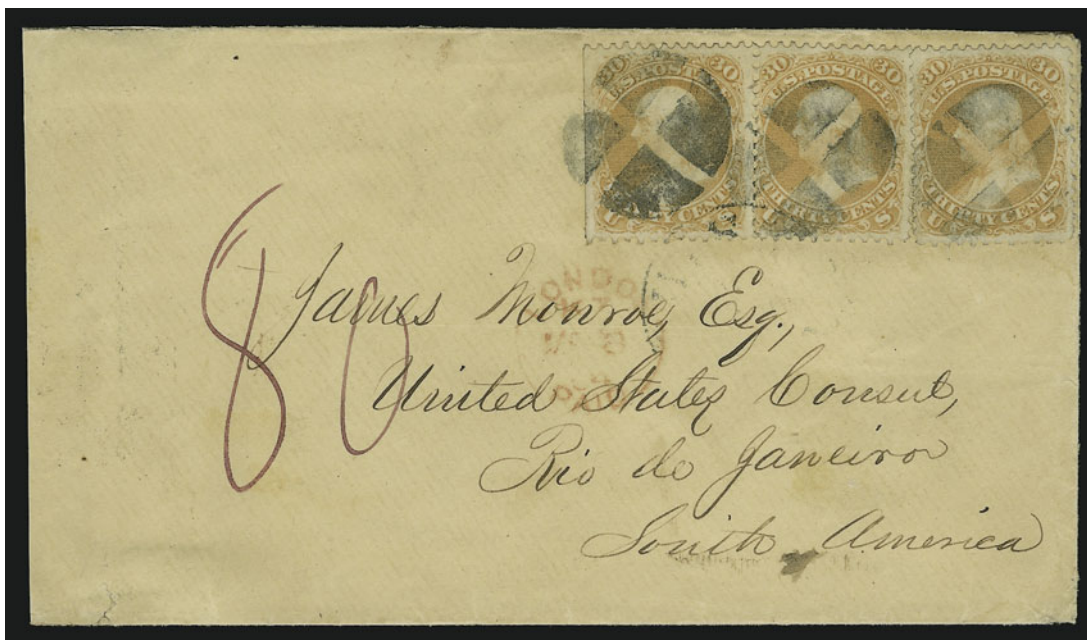 30 U.S. POSTAGE 30
THIRTY CENTS
U S
30 U.S. POSTAGE 30
THIRTY CENTS
U S
30 U.S. POSTAGE 30
THIRTY CENTS
U S
80
James Monroe, Esq.,
United States Consul,
Rio de Janeiro
South America
LONDON
PAID